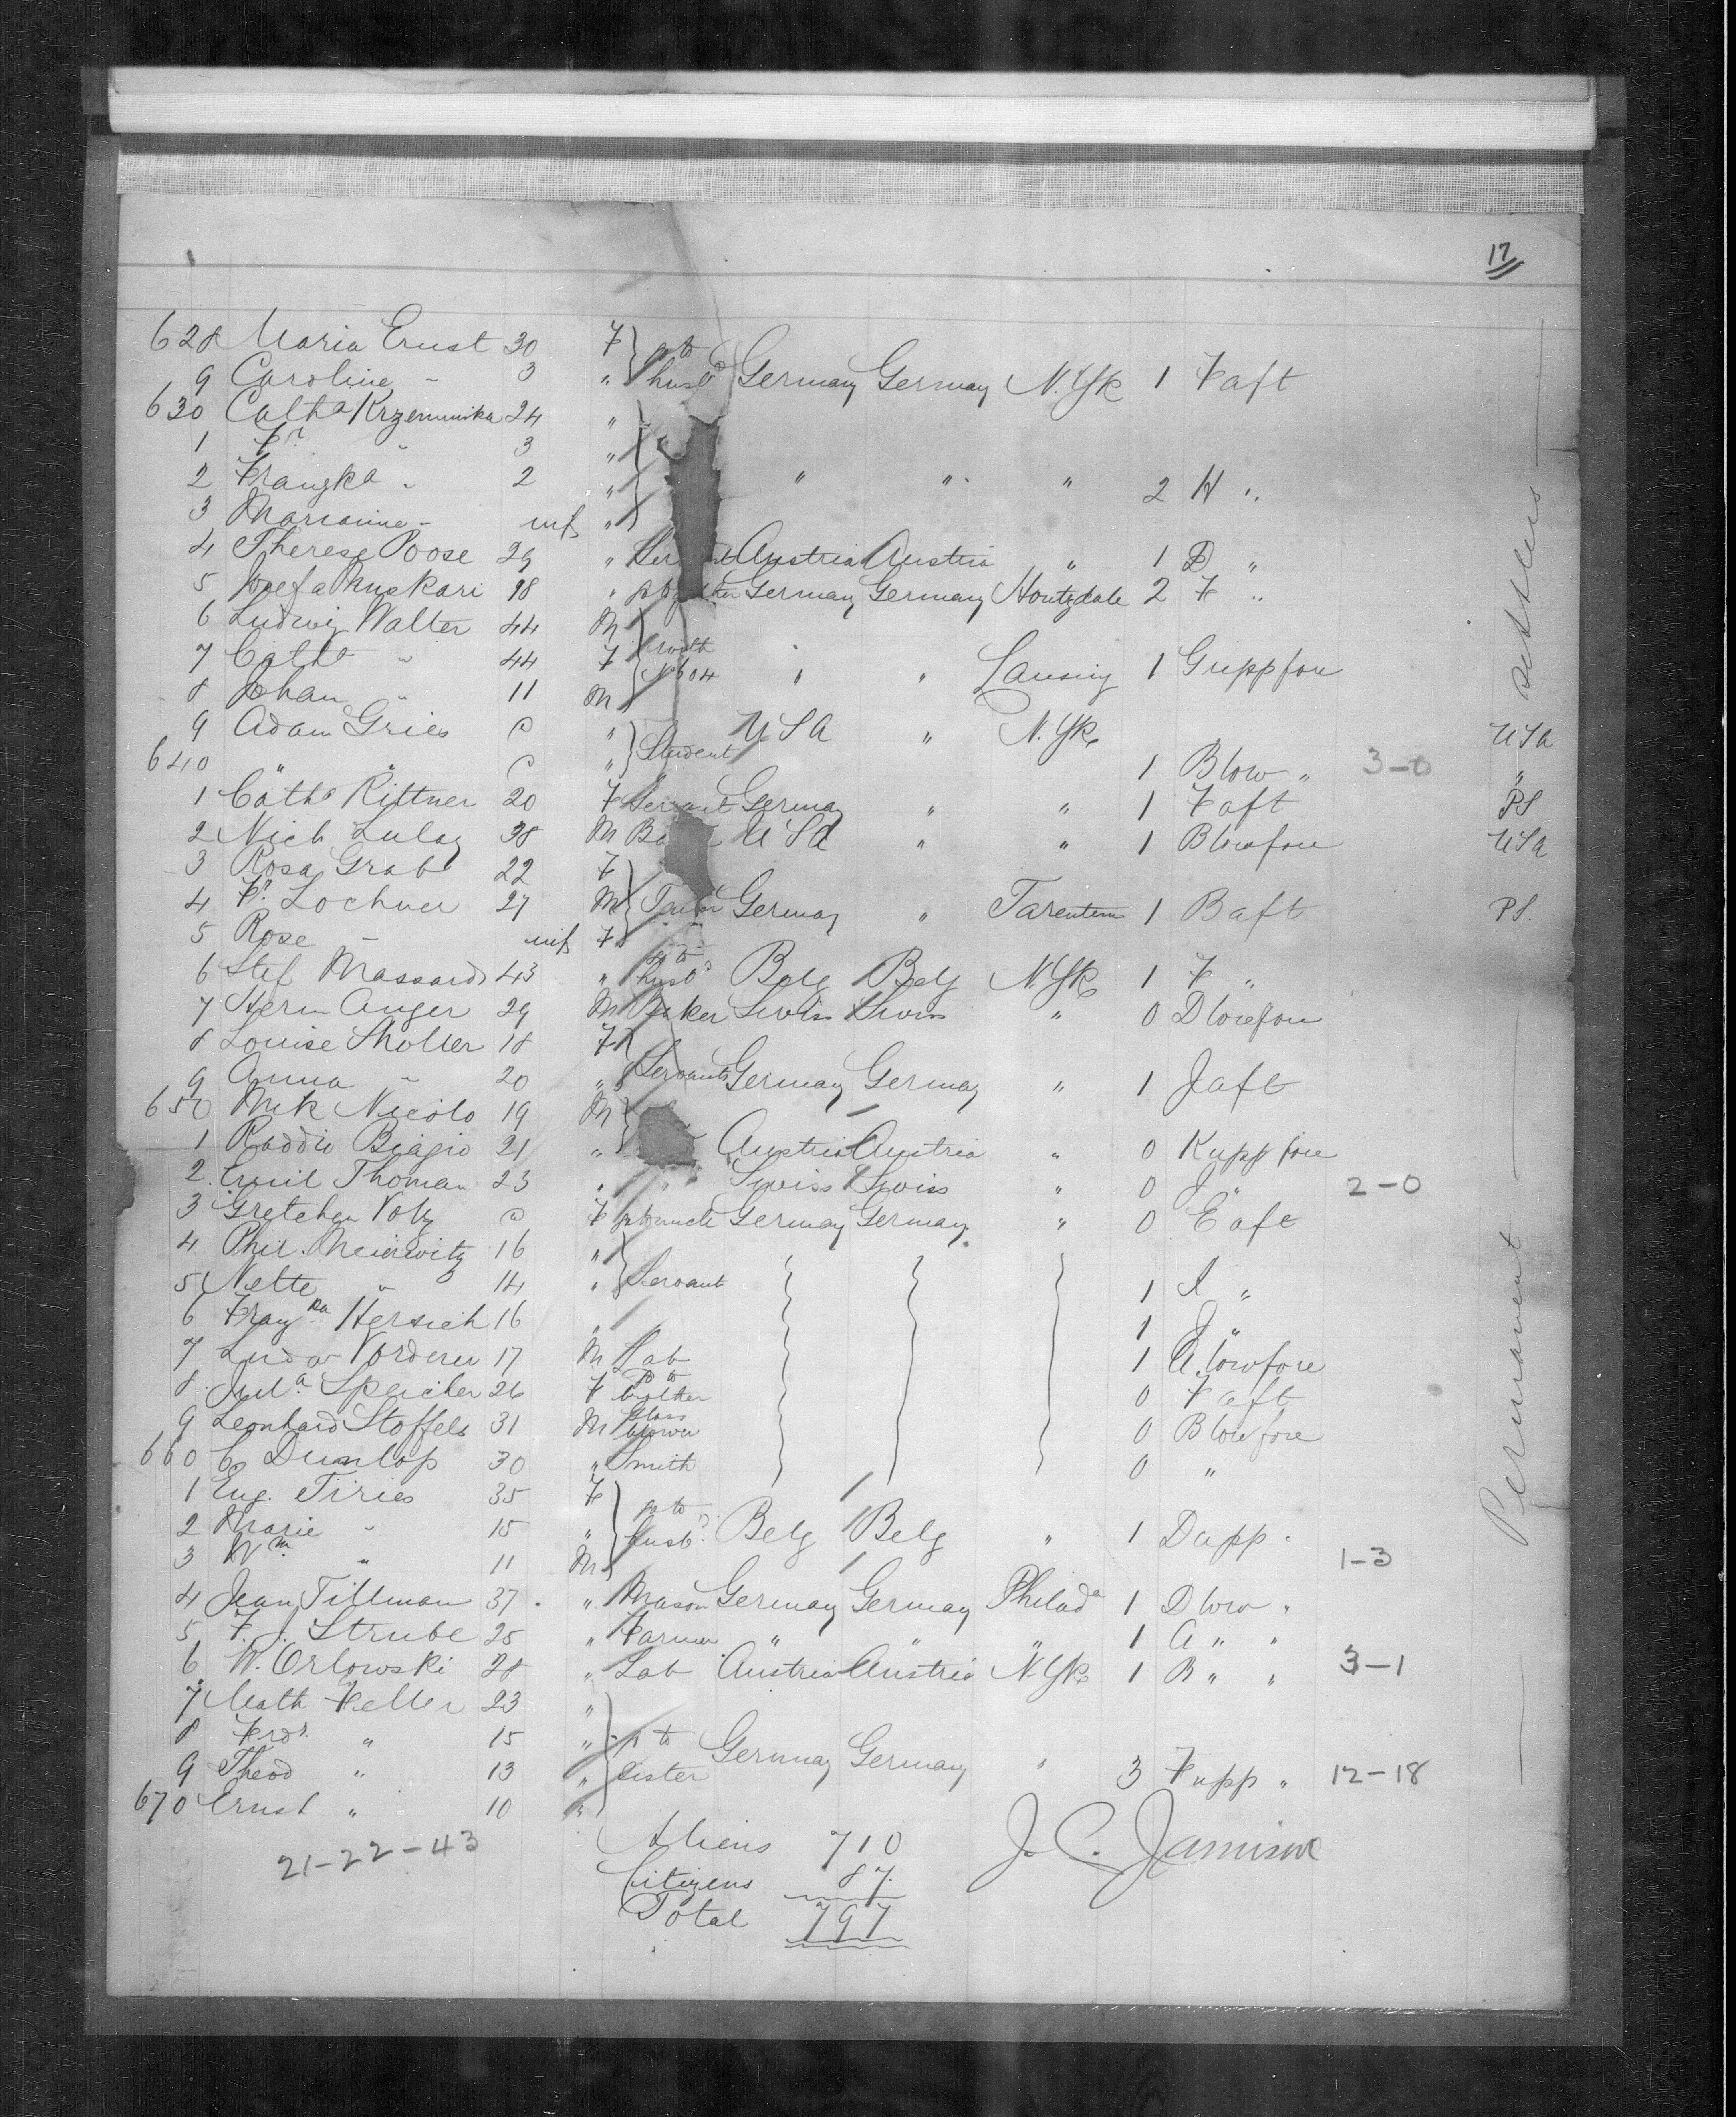 17
628 Maria Ernst 30 F go to
9 Caroline " 3 " husbd Germany Germany N.Yk 1 F aft
630 Cathª Krzeminika 24 "
1 Fr. " 3 "
2 Frangka " 2 " " " " 2 H "
3 Marianne " inf "
4 Therese Poose 29 " Austria Austria " 1 D "
5 Josefa Muskari 18 " Germany Germany Houtzdale 2 F "
6 Ludwig Walter 44 M with
7 Cathª " 44 F No 04 " " Lansing 1 G uppfore
8 Johan " 11 M
9 Adam Gries " USA " N.Yk USA
640 " " " Student 1 B low " 3-0 "
1 Cathª Rittner 20 F Servant Germay " " 1 F aft PS
2 Nich Lulay 38 M USA " " 1 B lowfore USA
3 Rosa Grabl 22 F
4 Fr. Lochner 27 M Germay " Tarentum 1 B aft PS.
5 Rose " inf F go to
6 Stef Massard 43 " husbd Belg Belg N.Yk 1 F "
7 Herm Anger 29 M Baker Swiss Swiss " 0 D lowfore
8 Louise Sholler 18 F
9 Anna " 20 " Servants Germay Germay " 1 J aft
650 Mek Nicolo 19 M
1 Raddio Biagio 21 " Austria Austria " 0 K upp fore
2 Emil Thoman 23 " " Swiss Swiss " 0 J " 2-0
3 Gretchen Volz F to uncle Germany Germany " 0 E aft
4 Phil. Meierwitz 16 "
5 Nette " 14 " Servant 1 I "
6 Franzka Hersich 16 " 1 J "
7 Ludw Vorderer 17 M Lab 1 A lowfore
8 Julª Speicher 26 F to brother 0 F aft
9 Leonhard Stoffels 31 M Glass blower 0 B low fore
660 C. Dunlop 30 " Smith 0 "
1 Eug. Tiries 35 F go to
2 Marie " 15 " husbd. Belg Belg " 1 D upp "
3 Wm " 11 M 1-3
4 Jean Tillman 37 " Mason Germay Germay Philadª 1 D low "
5 F. J. Strube 25 " Farmer " " " 1 A " "
6 W. Orlowski 28 " Lab Austria Austria N.Yk 1 B " " 3-1
7 Math Feller 23 "
8 Frdr. " 15 " to
9 Theod " 13 " sister Germay Germany " 3 F upp " 12-18
670 Ernst " 10 "
21-22-43
Aliens 710 J. C. Jamison
Citizens 87
Total 797
Permanent settlers